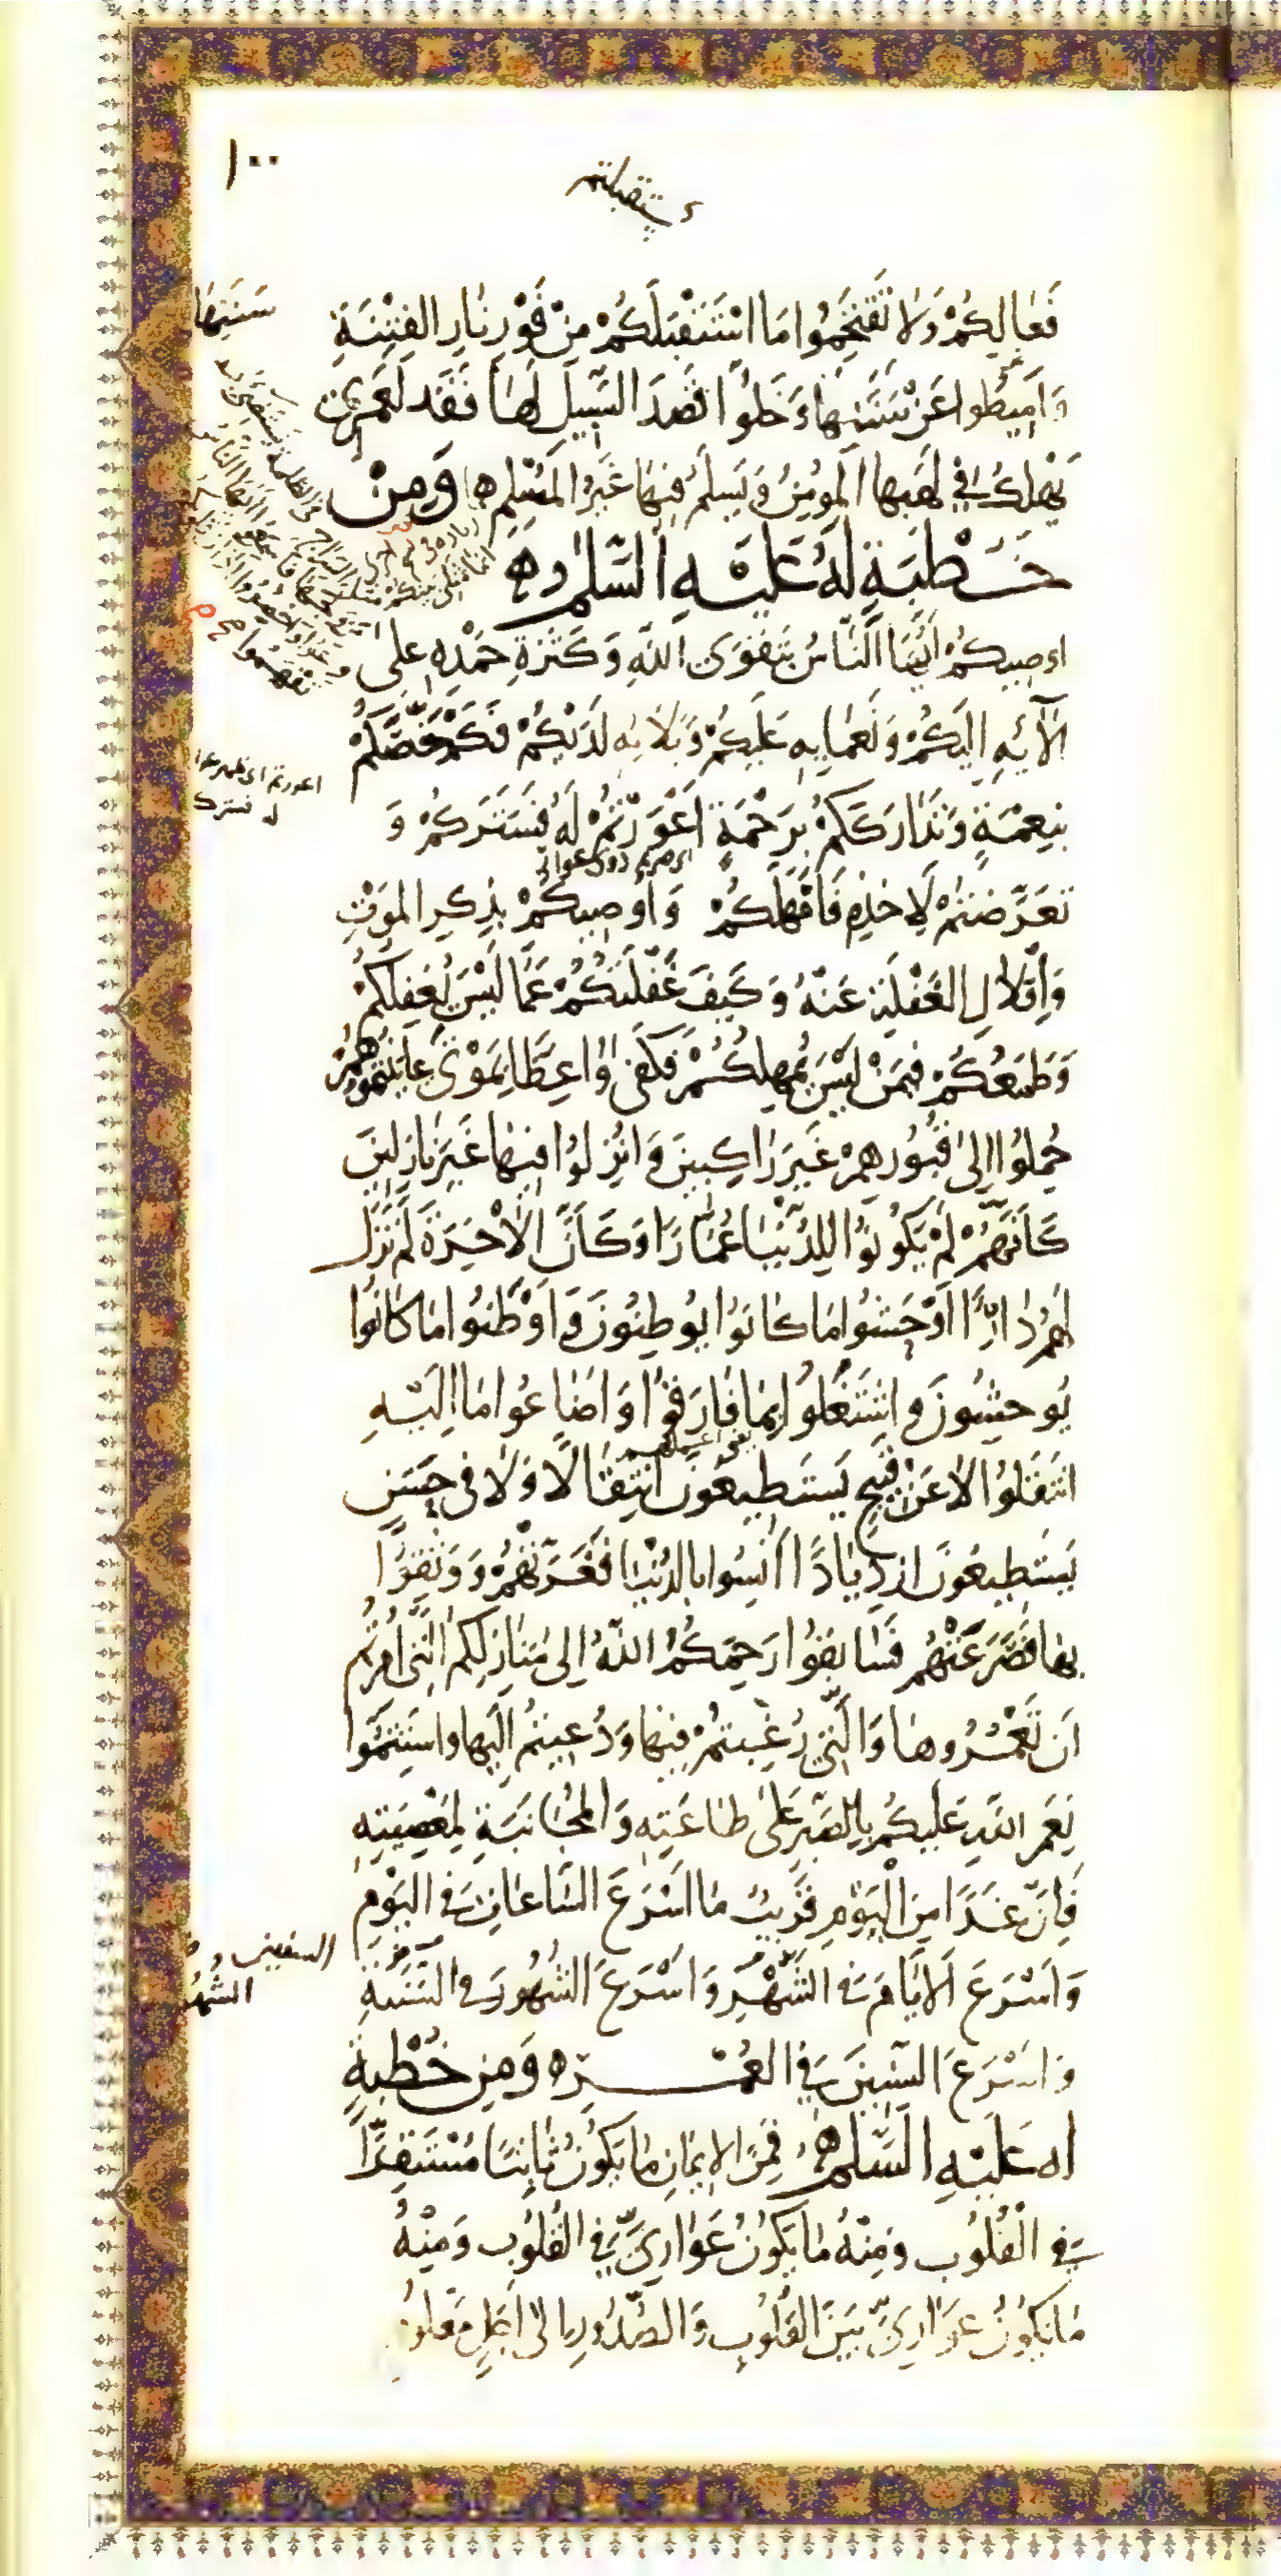 ١٠٠
يستقبلكم
فَعَالِكُمْ وَلَا تَقْتَحِمُوا مَا اسْتَقْبَلَكُمْ مِنْ فَوْرِ نَارِ الْفِتْنَةِ
سَنَنِهَا
وَأَمِيطُوا عَنْ سَنَنِهَا وَخَلُّوا قَصْدَ السَّبِيلِ لَهَا فَقَد لَعَمْرِي
يَهْلِكُ فِي لَهَبِهَا الْمُؤْمِنُ وَيَسْلَمُ فِيهَا غَيْرُ الْمُسْلِمِ وَمِنْ
خُطْبَةٍ لَهُ عَلَيْهِ السَّلَامُ
أُوصِيكُمْ أَيُّهَا النَّاسُ بِتَقْوَى اللَّهِ وَكَثْرَةِ حَمْدِهِ عَلَى
آلَائِهِ إِلَيْكُمْ وَنَعْمَايِهِ عَلَيْكُمْ وَبَلَائِهِ لَدَيْكُمْ فَكَمْ خَصَّكُمْ
اعورتم اى ظهرتم عوا
له فستركم
بِنِعْمَةٍ وَتَدَارَكَكُمْ بِرَحْمَةٍ أَعْوَرْتُمْ لَهُ فَسَتَرَكُمْ وَ
اى صرتم ذوى عوار
تَعَرَّضْتُمْ لِأَخْذِهِ فَأَمْهَلَكُمْ وَأُوصِيكُمْ بِذِكْرِ الْمَوْتِ
وَإِقْلَالِ الْغَفْلَةِ عَنْهُ وَكَيْفَ غَفْلَتُكُمْ عَمَّا لَيْسَ يُغْفِلُكُمْ
وَطَمَعُكُمْ فِيمَنْ لَيْسَ يُمْهِلُكُمْ فَكَفَى وَاعِظًا بِمَوْتَى عَايَنْتُمُوهُمْ
حُمِلُوا إِلَى قُبُورِهِمْ غَيْرَ رَاكِبِينَ وَأُنْزِلُوا فِيهَا غَيْرَ نَازِلِينَ
كَأَنَّهُمْ لَمْ يَكُونُوا لِلدُّنْيَا عُمَّارًا وَكَأَنَّ الْآخِرَةَ لَمْ تَزَلْ
لَهُمْ دَارًا أَوْحَشُوا مَا كَانُوا يُوطِنُونَ وَأَوْطَنُوا مَا كَانُوا
يُوحِشُونَ وَاشْتَغَلُوا بِمَا فَارَقُوا وَأَضَاعُوا مَا إِلَيْهِ
يعنى اعمالهم
انْتَقَلُوا لَا عَنْ قَبِيحٍ يَسْتَطِيعُونَ انْتِقَالًا وَلَا فِي حَسَنٍ
يَسْتَطِيعُونَ ازْدِيَادًا أَنِسُوا بِالدُّنْيَا فَغَرَّتْهُمْ وَوَثِقُوا
بِهَا فَصَرَعَتْهُمْ فَسَابِقُوا رَحِمَكُمُ اللَّهُ إِلَى مَنَازِلِكُمُ الَّتِي أُمِرْتُمْ
أَنْ تَعْمُرُوهَا وَالَّتِي رُغِّبْتُمْ فِيهَا وَدُعِيتُمْ إِلَيْهَا وَاسْتَتِمُّوا
نِعَمَ اللَّهِ عَلَيْكُمْ بِالصَّبْرِ عَلَى طَاعَتِهِ وَالْمُجَانَبَةِ لِمَعْصِيَتِهِ
فَإِنَّ غَدًا مِنَ الْيَوْمِ قَرِيبٌ مَا أَسْرَعَ السَّاعَاتِ فِي الْيَوْمِ
وَأَسْرَعَ الْأَيَّامَ فِي الشَّهْرِ وَأَسْرَعَ الشُّهُورَ فِي السَّنَةِ
الشهو
وَأَسْرَعَ السِّنِينَ فِي الْعُمُرِ وَمِنْ خُطْبَةٍ
لَهُ عَلَيْهِ السَّلَامُ فَمِنَ الْإِيمَانِ مَا يَكُونُ ثَابِتًا مُسْتَقِرًّا
فِي الْقُلُوبِ وَمِنْهُ مَا يَكُونُ عَوَارِيَّ فِي الْقُلُوبِ وَمِنْهُ
مَا يَكُونُ عَوَارِيَّ بَيْنَ الْقُلُوبِ وَالصُّدُورِ إِلَى أَجَلٍ مَعْلُومٍ